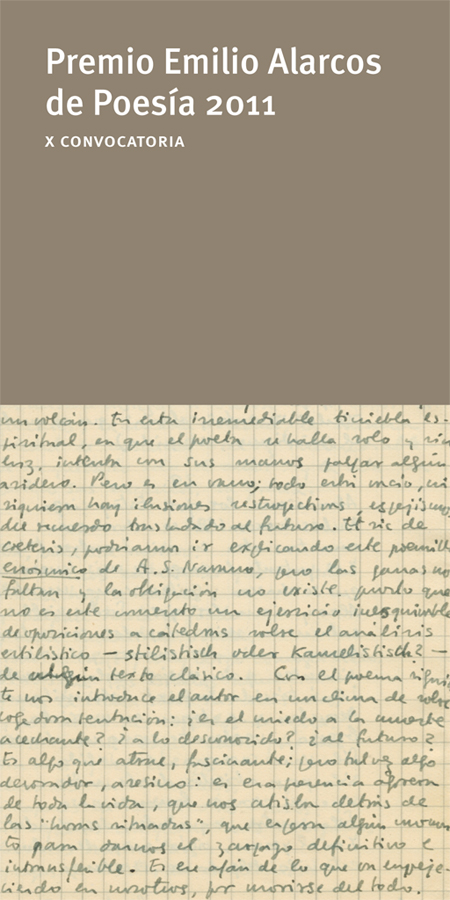 Premio Emilio Alarcos
de Poesía 2011
X CONVOCATORIA
un volcán. En esta irremediable tiniebla es-
piritual, en que el poeta se halla solo y sin
luz, intenta con sus manos palpar algún
asidero. Pero es en vano; todo está vacío, ni
siquiera hay ilusiones retrojectivas, espejismo
del recuerdo trasladado al futuro. Et sic de
ceteris, podríamos ir explicando este poemilla
de A. S. Navarro, pero las ganas no
faltan y la obligación no existe, puesto que
no es este comento un ejercicio inesquivable
de oposiciones a cátedras sobre el análisis
estilístico — stilistisch oder Kamelistisch? —
de algún texto clásico. Con el poema siguien
te nos introduce el autor en un clima de
tentación: ¿es el miedo a la muerte
acechante? ¿a lo desconocido? ¿al futuro?
Es algo que atrae, fascinante; pero tal vez algo
devorador, asesino: es esa presencia
de toda la vida, que nos atisba detrás de
las "horas situadas", que espera algún momen
to para darnos el zarpazo definitivo e
intransferible. Es ese afán de lo que va empeje-
ciendo en nosotros, por morirse del todo.